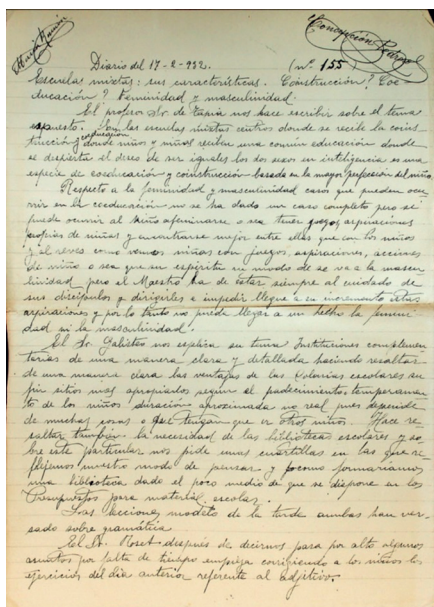 Diario del 17-2-932. (nº 155)
Escuelas mixtas: sus características. Coinstrucción? Coe-
ducación? Feminidad y masculinidad.
El profesor Sr. de Tapia nos hace escribir sobre el tema
expuesto. Son las escuelas mixtas centros donde se recibe la coins
trucción y coeducación donde niños y niñas reciben una común educación donde
se despierta el deseo de ser iguales los dos sexos en inteligencia es una
especie de coeducación y coinstrucción basada en la mayor perfección del niño.
Respecto a la feminidad y masculinidad casos que pueden ocu
rrir en la coeducación no se ha dado un caso completo pero se
puede ocurrir al niño afeminarse o sea tener juegos, aspiraciones
propias de niñas y encontrarse mejor entre ellas que con los niños
y al revés como vemos niñas con juegos, aspiraciones, acciones
de niño o sea que su espíritu en modo de se va a la mascu
linidad pero el Maestro ha de estar siempre al cuidado de
sus discípulos y dirigirles e impedir llegue a su incremento estas
aspiraciones y por lo tanto no puede llegar a un hecho la femini
dad ni la masculinidad.
El Sr. Galisteo nos explica su tema Instituciones complemen
tarias de una manera clara y detallada haciendo resaltar
de una manera clara las ventajas de las Colonias escolares se
gún sitios más apropiados según el padecimiento temperamen
to de los niños duración aproximada no real pues depende
de muchas cosas o que tengan que ir otros niños. Hace re
saltar también la necesidad de las bibliotecas escolares y so
bre este particular nos pide unas cuartillas en las que re
flejemos nuestro modo de pensar y como formaríamos
una biblioteca dado el poco medio de que se dispone en los
Presupuestos para material escolar.
Las lecciones modelo de la tarde ambas han ver
sado sobre gramática
El Sr. Roset después de decirnos pasa por alto algunos
asuntos por falta de tiempo empieza corrigiendo a los niños los
ejercicios del día anterior referente al adjetivo.